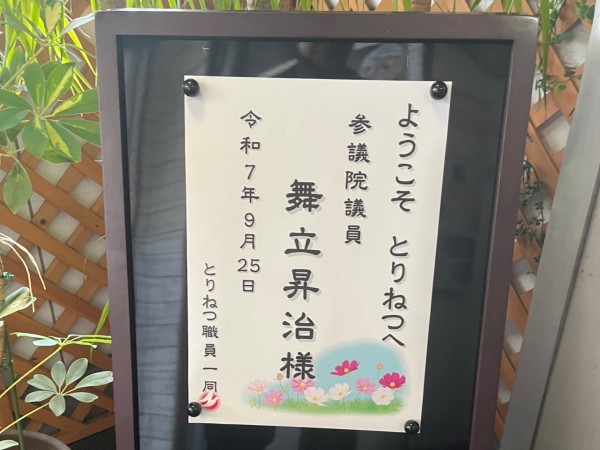 ようこそ とりねつへ
参議院議員
舞立昇治様
令和7年9月25日
とりねつ職員一同